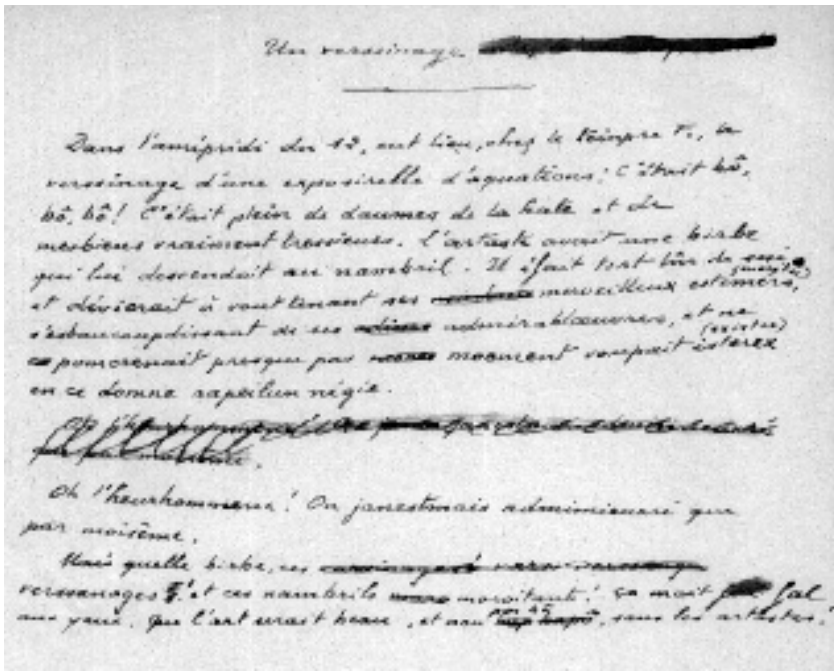 Un verssinage
Dans l'amipridi du 12, eut lieu, chez le teinpre F., le
verssinage d'une exposirelle d'aquations: C'était bô,
bô, bô! C'était plein de daumes de la hate et de
mesbieurs vraiment tressieurs. L'artaste avait une birbe
qui lui descendait au nambril. Il ésait tort
et dévierait à vout tenant ses merveilleux
s'esbaucoupdissant de ses admirablœuvres, et ne
pomcrenait presque pas moement voupait isterex (exister)
en ce domne
Oh l'heurhommeux! On janestmais admimieuré que
par moisême.
Mais quelle birbe, ces
verssanages! et ces nambrils
aux yeux, que l'art serait beau, et sans les artastes!